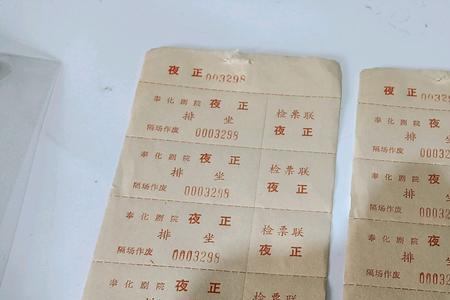 夜正 003298
奉化剧院 夜正
排 坐
隔场作废 0003298
检票联
夜正
奉化剧院 夜正
排 坐
隔场作废 0003298
检票联
夜正
奉化剧院 夜正
排 坐
隔场作废 0003298
检票联
夜正
奉化剧院 夜正
排
检票联
夜正
奉化剧院
排
隔场作废
奉化剧院
排
隔场作废
奉化剧院
排
隔场作废
奉化剧院